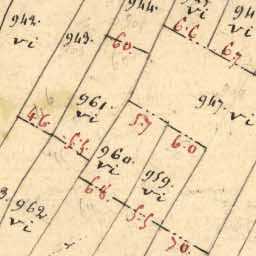 944.
942.
vi
943.
60.
vi
6.6.
67
961.
vi
947. vi
46
5.5.
57
6.0
960
vi
959.
vi
68.
5.5
70.
962
vi